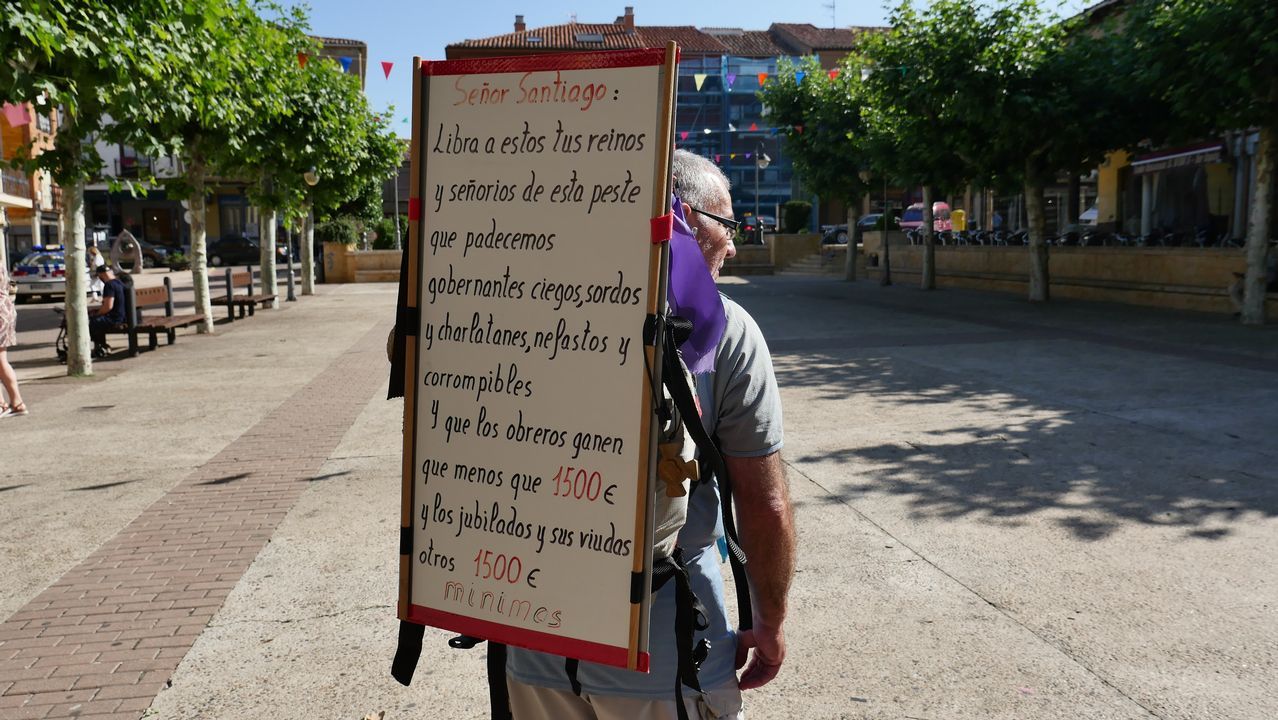 Señor Santiago:
Libra a estos tus reinos
y señorios de esta peste
que padecemos
gobernantes ciegos, sordos
y charlatanes, nefastos y
corrompibles
Y que los obreros ganen
que menos que 1500 €
y los jubilados y sus viudas
otros 1500 €
minimos